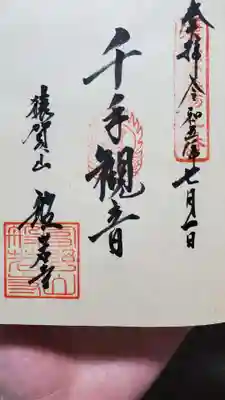 奉拝 令和五年七月一日
千手観音
猿賀山 般若寺